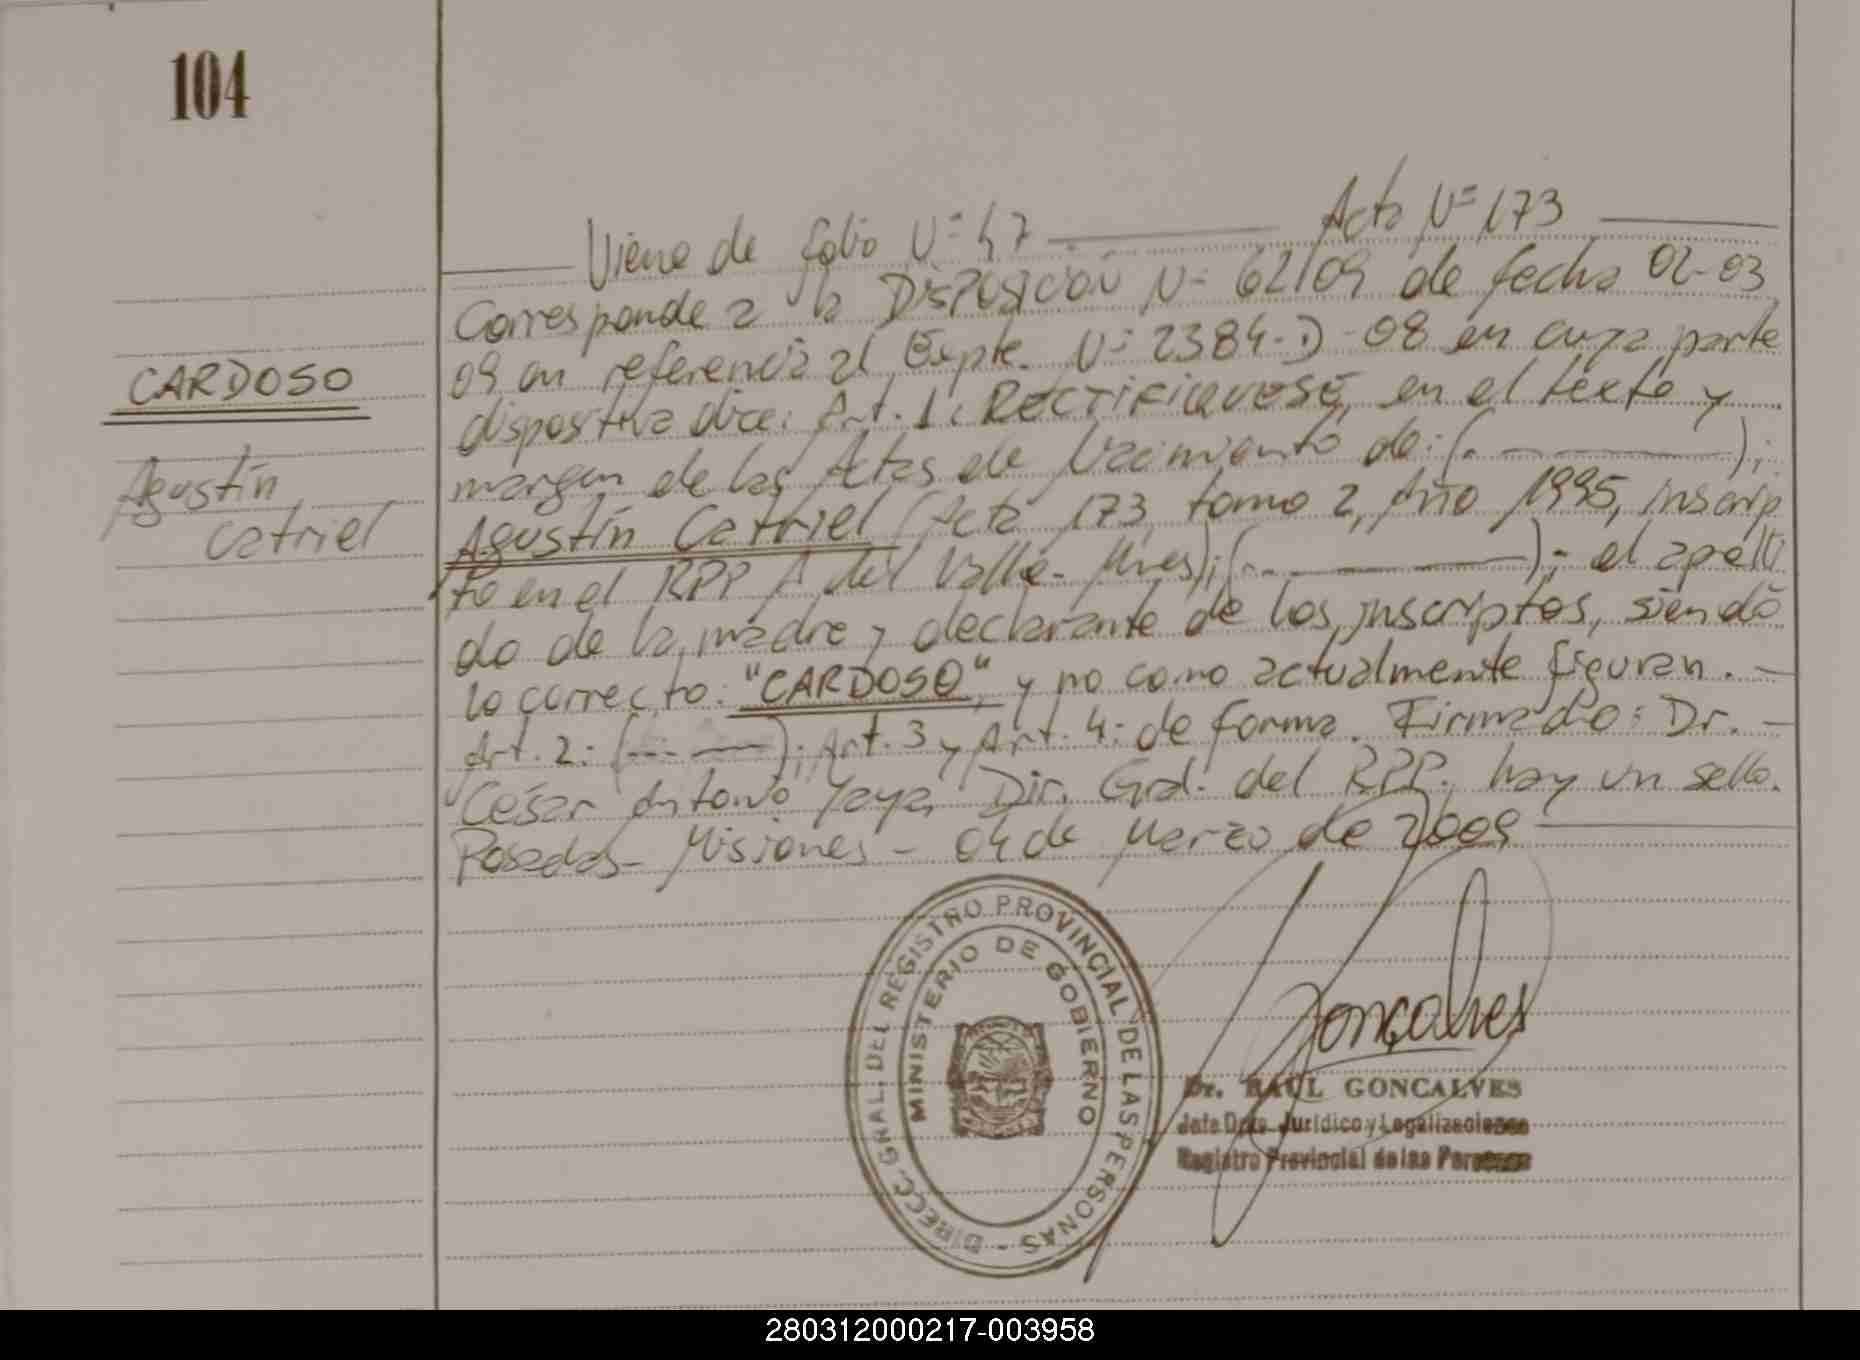 104
Viene de folio Nº 47 Acta Nº 173
Corresponde a la DISPOSICIÓN Nº 62/09 de fecha 02-03
09 en referencia al Expte. Nº 2384-D-08 en cuya parte
dispositiva dice: Art. 1: RECTIFIQUESE, en el texto y
margen de las Actas de Nacimiento de: (. ———);
Agustín Catriel (Acta 173, tomo 2, Año 1995, inscrip
to en el RPP A del Valle - Mnes); (- ———); el apelli
do de la madre y declarante de los inscriptos, siendo
lo correcto: "CARDOSO", y no como actualmente figuran. -
Art. 2: (--- ——); Art. 3 y Art. 4: de forma. Firmado: Dr. -
César Antonio Yaya, Dir. Gral. del RPP. hay un sello.
Posadas - Misiones - 04 de Marzo de 2009
CARDOSO
Agustín
Catriel
DIRECC. GRAL. DEL REGISTRO PROVINCIAL DE LAS PERSONAS -
MINISTERIO DE GOBIERNO
Gonçalves
Dr. RAUL GONCALVES
Jefe Dpto. Jurídico y Legalizaciones
Registro Provincial de las Personas
280312000217-003958